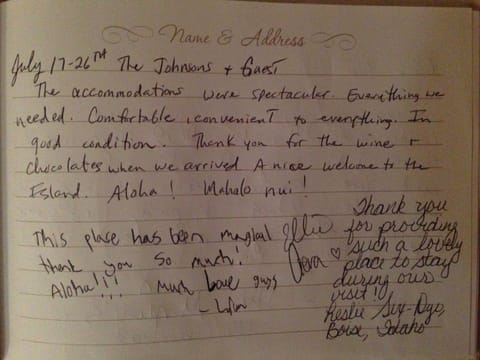 Name & Address
July 17-26TH The Johnsons + Guest
The accommodations were spectacular. Everything we
needed. Comfortable, convenient to everything. In
good condition. Thank you for the wine +
chocolates when we arrived A nice welcome to the
Island. Aloha! Mahalo nui!
This place has been magical
thank you so much.
Aloha!!! much love guys
Ellie
Thank you
for providing
such a lovely
place to stay
during our
visit!
Leslie
Boise, Idaho